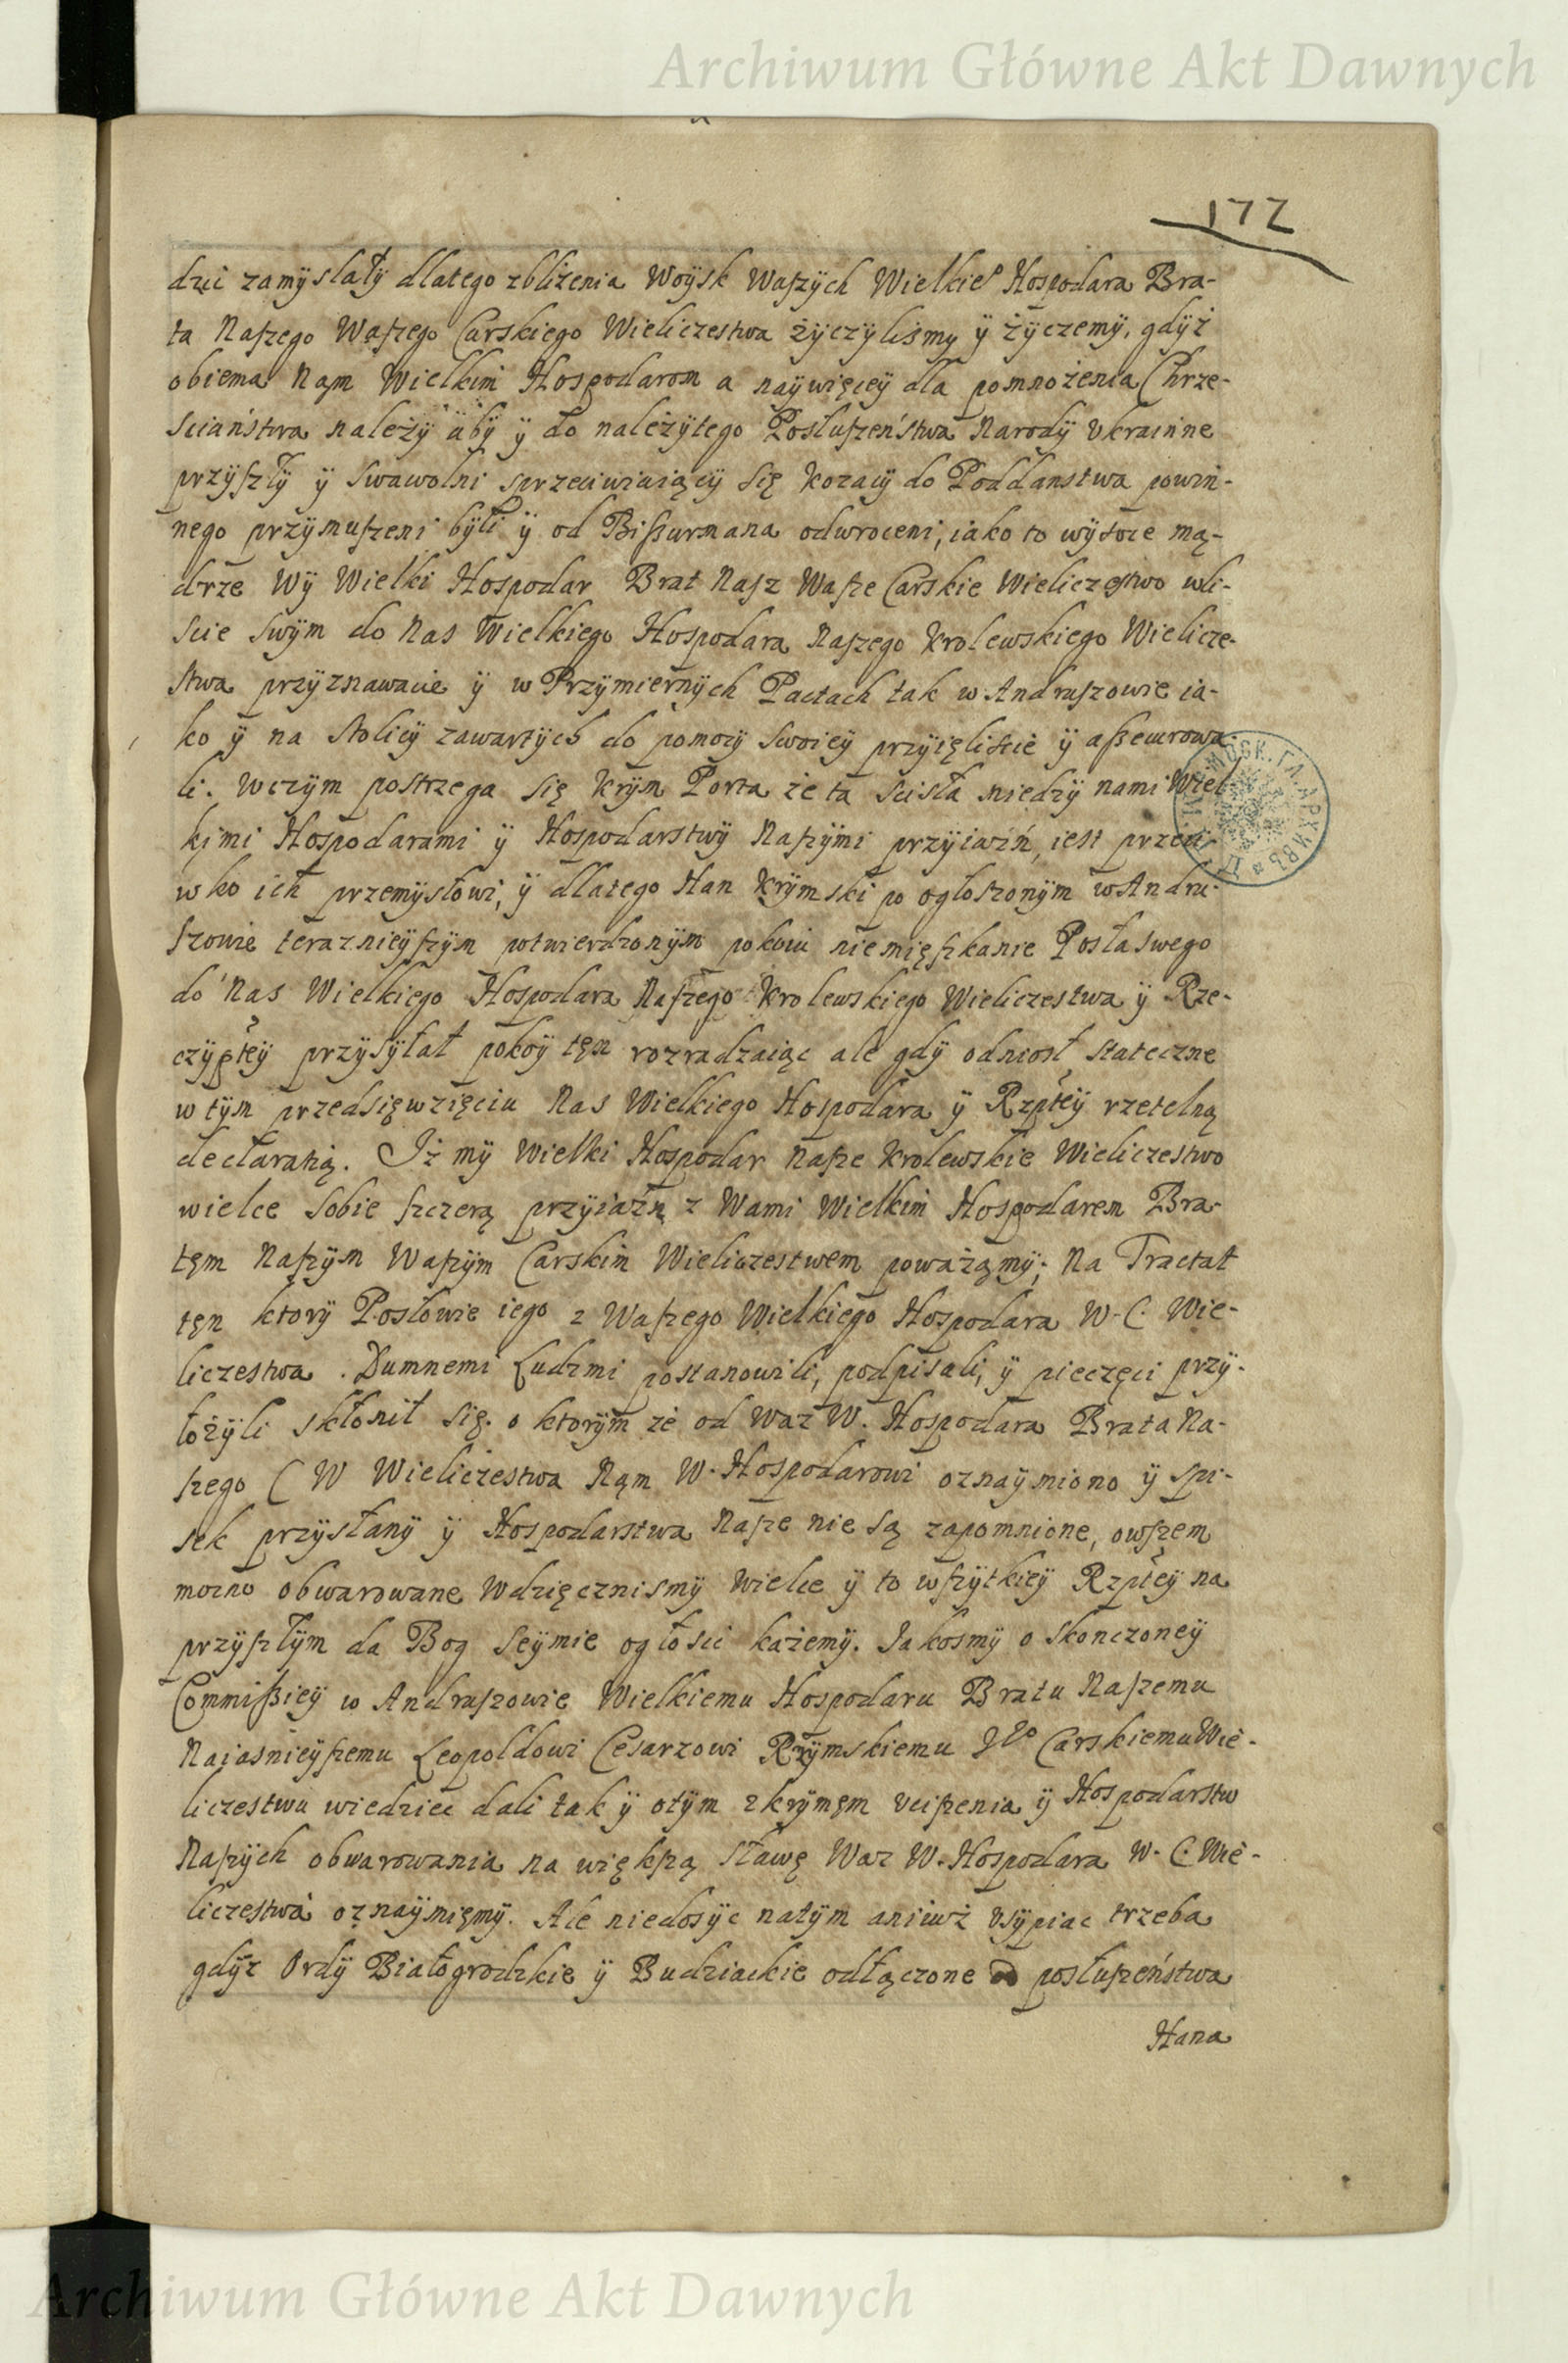 Archiwum Główne Akt Dawnych
172
dzić zamyslały dlatego zbliżenia Woÿsk Waszych Wielkie⁰ Hospodara Bra-
ta Naszego Waszego Carskiego Wieliczestwa życzyliśmy ÿ życzemÿ, gdÿż
obiema Nąm Wielkim Hospodarom a naÿwięceÿ dla pomnożenia Chrze-
sciaństwa należÿ abÿ ÿ do należytego Posłuszeństwa Narodÿ Ukrainne
przyszłÿ ÿ swawolni sprzeciwiaiącÿ się kozacÿ do Poddanstwa powin-
nego przymuszeni byli ÿ od Bissurmana odwroceni, iako to wysoce mą-
drze Wÿ Wielki Hospodar Brat Nasz Wasze Carskie Wieliczestwo wli-
scie Swÿm do Nas Wielkiego Hospodara Naszego krolewskiego Wielicze-
stwa przyznawacie ÿ w Przymiernÿch Pactach tak w Andruszowie ia-
ko ÿ na Stolicÿ zawartÿch do pomocÿ swoieÿ przyięliscie ÿ assecurowa-
li. Wczym postrzega się krÿm Porta że ta scisła miedzÿ nami Wiel-
kimi Hospodarami ÿ Hospodarstwÿ Naszÿmi przyiaźń, iest przeci-
wko ich przemysłowi, ÿ dlatego Han krÿmski po ogłoszonÿm w Andru-
szowie teraznieÿszym potwierdzonÿm pokoiu niemięszkanie Posła swego
do Nas Wielkiego Hospodara Naszego krolewskiego Wieliczestwa ÿ Rze-
czyptеÿ przysyłał pokoÿ tęn rozradzaiąc ale gdÿ odniosł stateczne
w tÿm przedsięwzięciu Nas Wielkiego Hospodara ÿ Rzpteÿ rzetelną
declaratią. Iż mÿ Wielki Hospodar Nasze krolewskie Wieliczestwo
wielce sobie szczerą przyiaźń z Wami Wielkim Hospodarem Bra-
tęm Naszÿm Waszÿm Carskim Wieliczestwem poważąmÿ; Na Tractat
tęn ktorÿ Posłowie iego z Waszego Wielkiego Hospodara W. C. Wie-
liczestwa. Dumnemi Ludzmi postanowili, podpisali, ÿ pieczęci przÿ-
łożÿli skłonił się. o ktorÿm że od Wasz W. Hospodara Brata Na-
szego C W Wieliczestwa Nąm W. Hospodarowi oznaÿmiono ÿ spi-
sek przysłanÿ ÿ Hospodarstwa Nasze nie są zapomnione, owszem
mocno obwarowane Wdzięcznismÿ Wielce ÿ to wszytkieÿ Rzpteÿ na
przyszłÿm da Bog Seÿmie ogłosić każemÿ. Jakosmÿ o skonczoneÿ
Commissieÿ w Andruszowie Wielkiemu Hospodaru Bratu Naszemu
Naiasnieÿszemu Leopoldowi Cesarzowi Rzÿmskiemu J⁰ Carskiemu Wie-
liczestwu wiedziec dali tak ÿ otÿm z krymęm uciszenia ÿ Hospodarstw
Naszÿch obwarowania na większą sławę Wasz W. Hospodara W. C. Wie-
liczestwa oznaÿmięmÿ. Ale niedosÿc natÿm aniwż usypiac trzeba
gdÿż Ordÿ Białogrodzkie ÿ Budziackie odłączone od posłuszeństwa
Hana
Archiwum Główne Akt Dawnych